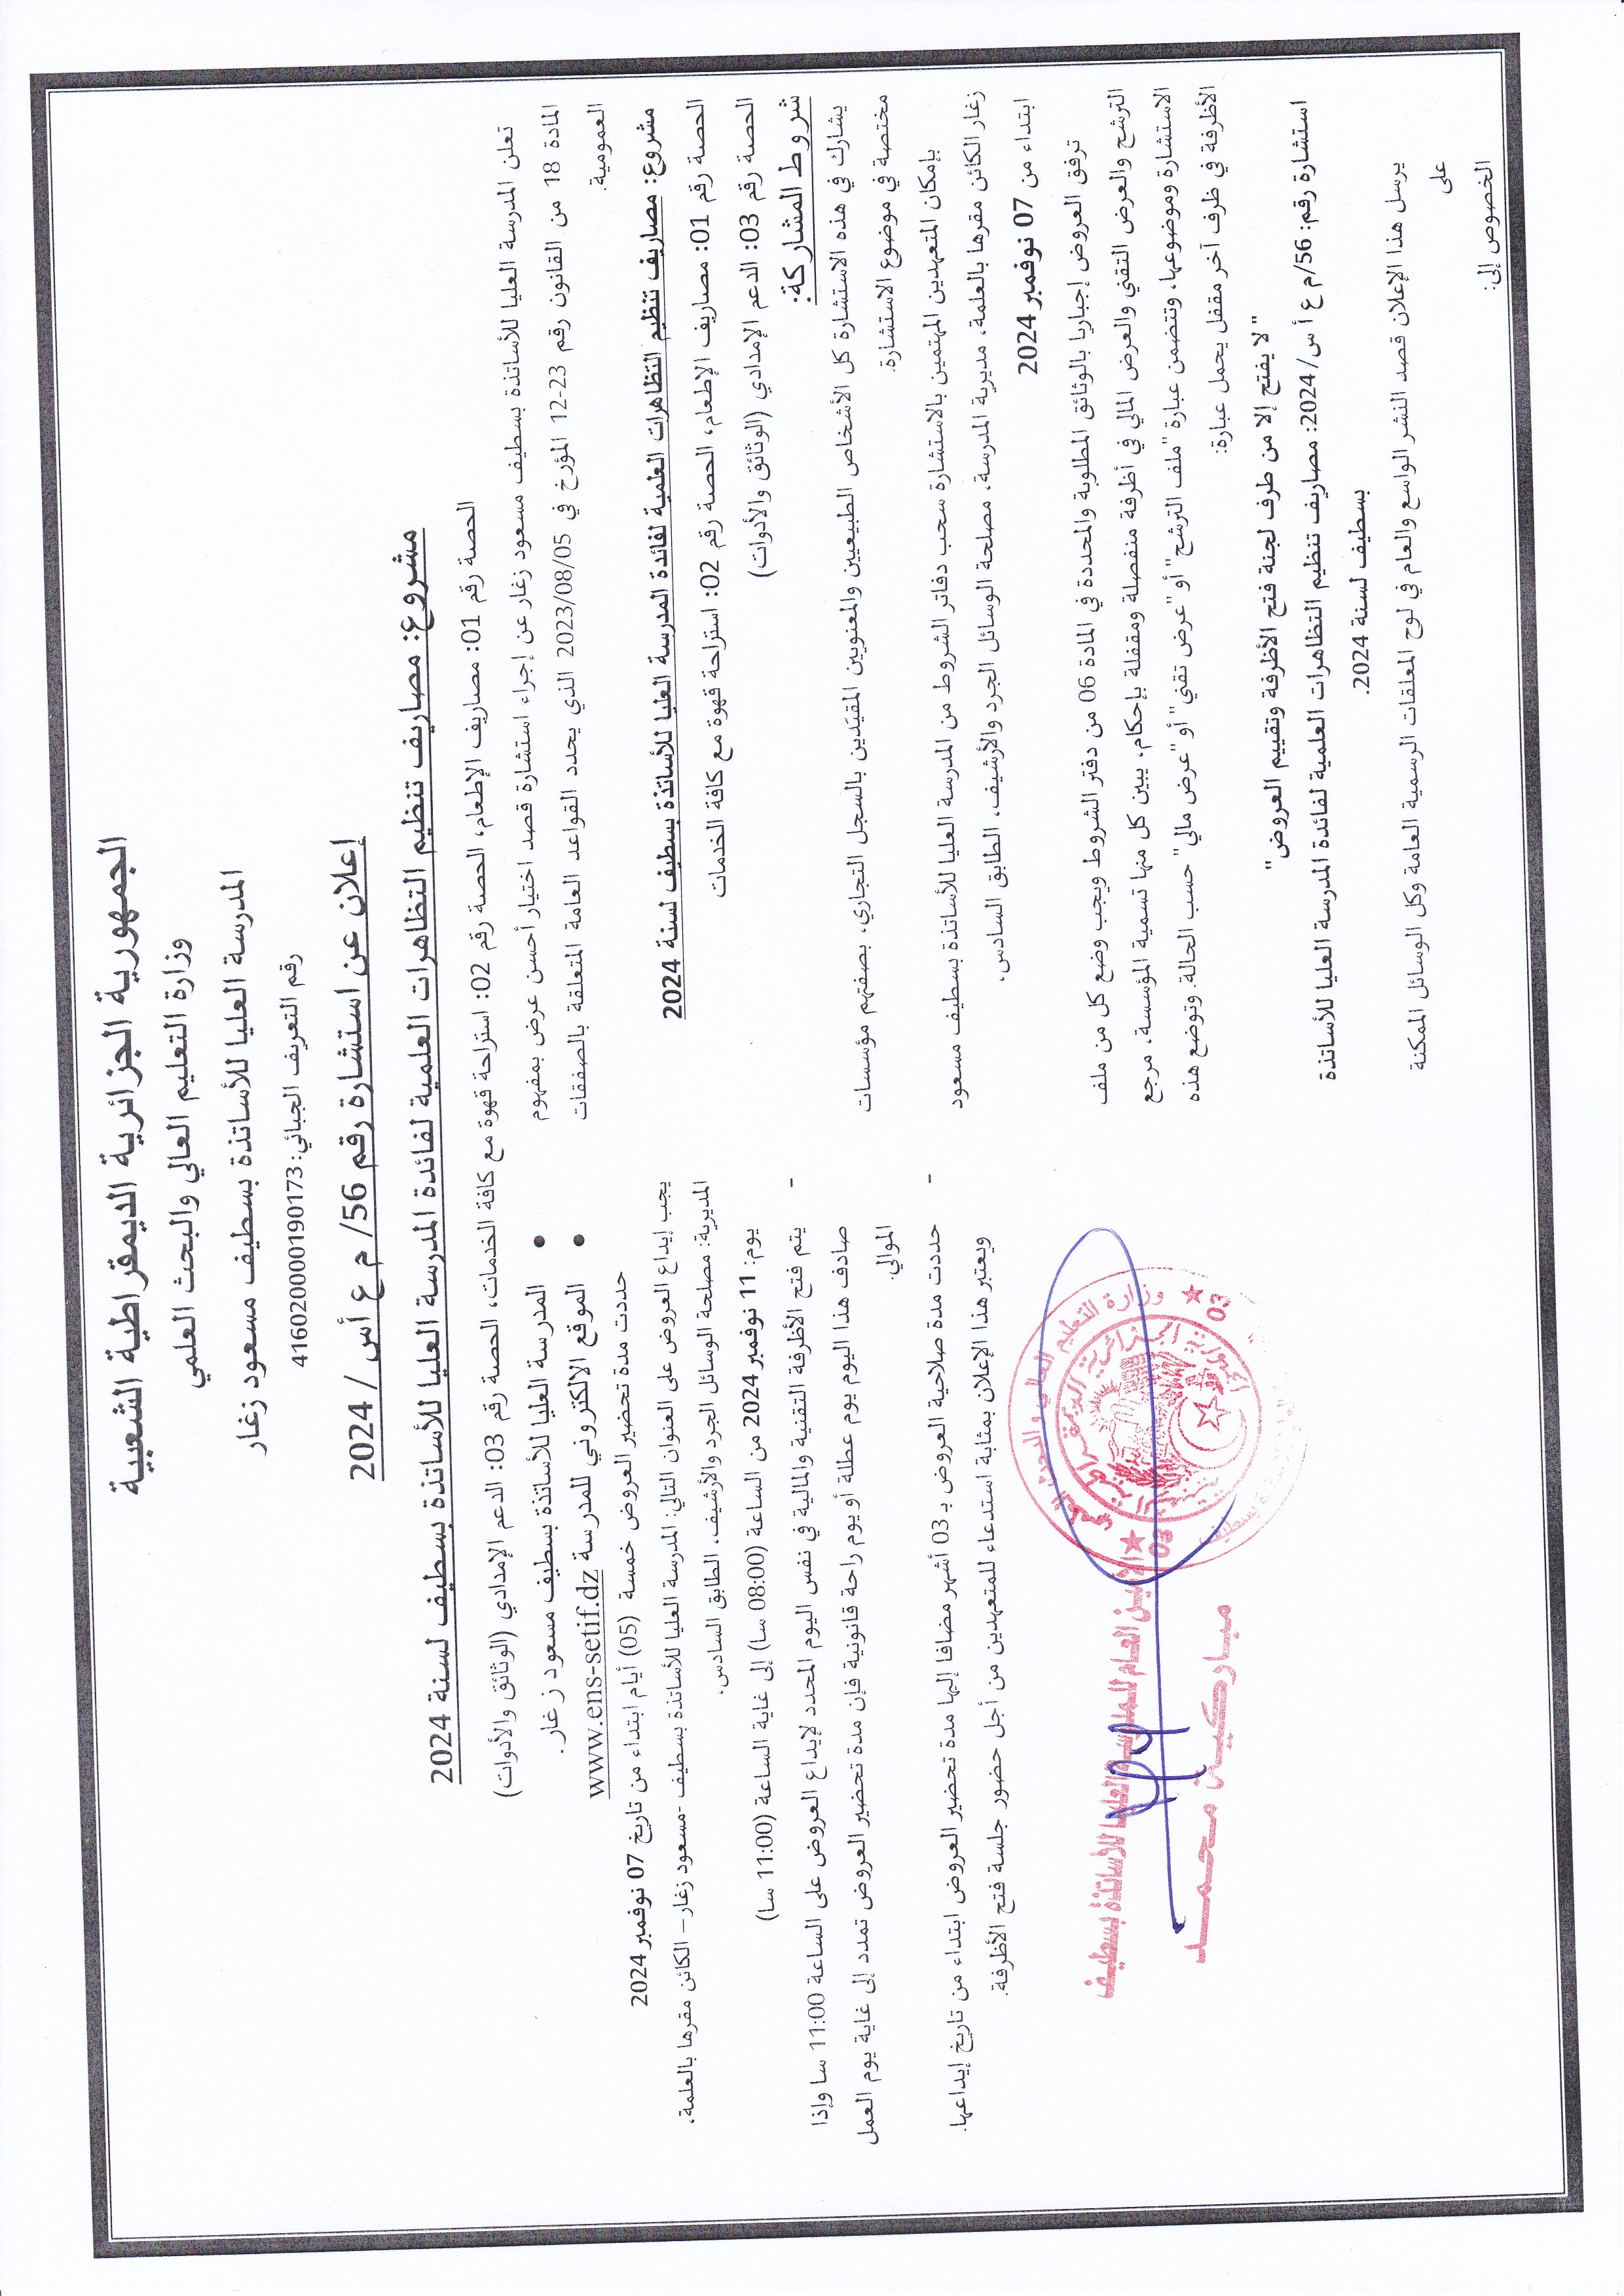 الجمهورية الجزائرية الديمقراطية الشعبية
وزارة التعليم العالي والبحث العلمي
المدرسة العليا للأساتذة بسطيف مسعود زغار
رقم التعريف الجبائي: 416020000190173
إعلان عن استشارة رقم 56/ م ع أس / 2024
مشروع: مصاريف تنظيم التظاهرات العلمية لفائدة المدرسة العليا للأساتذة بسطيف لسنة 2024
الحصة رقم 01: مصاريف الإطعام، الحصة رقم 02: استراحة قهوة مع كافة الخدمات، الحصة رقم 03: الدعم الإمدادي (الوثائق والأدوات)
تعلن المدرسة العليا للأساتذة بسطيف مسعود زغار عن إجراء استشارة قصد اختيار أحسن عرض بمفهوم
المادة 18 من القانون رقم 23-12 المؤرخ في 2023/08/05 الذي يحدد القواعد العامة المتعلقة بالصفقات
العمومية.
مشروع: مصاريف تنظيم التظاهرات العلمية لفائدة المدرسة العليا للأساتذة بسطيف لسنة 2024
الحصة رقم 01: مصاريف الإطعام، الحصة رقم 02: استراحة قهوة مع كافة الخدمات
الحصة رقم 03: الدعم الإمدادي (الوثائق والأدوات)
شروط المشاركة:
يشارك في هذه الاستشارة كل الأشخاص الطبيعيين والمعنويين المقيّدين بالسجل التجاري، بصفتهم مؤسسات
مختصة في موضوع الاستشارة.
بإمكان المتعهدين المهتمين بالاستشارة سحب دفاتر الشروط من المدرسة العليا للأساتذة بسطيف مسعود
زغار الكائن مقرها بالعلمة، مديرية المدرسة، مصلحة الوسائل الجرد والأرشيف، الطابق السادس.
ابتداء من 07 نوفمبر 2024
ترفق العروض إجباريا بالوثائق المطلوبة والمحددة في المادة 06 من دفتر الشروط ويجب وضع كل من ملف
الترشح والعرض التقني والعرض المالي في أظرفة منفصلة ومقفلة بإحكام، يبين كل منها تسمية المؤسسة، مرجع
الاستشارة وموضوعها، وتتضمن عبارة "ملف الترشح" أو "عرض تقني" أو "عرض مالي" حسب الحالة. وتوضع هذه
الأظرفة في ظرف آخر مقفل يحمل عبارة:
" لا يفتح إلا من طرف لجنة فتح الأظرفة وتقييم العروض"
استشارة رقم: 56/م ع أ س/ 2024: مصاريف تنظيم التظاهرات العلمية لفائدة المدرسة العليا للأساتذة
بسطيف لسنة 2024.
يرسل هذا الإعلان قصد النشر الواسع والعام في لوح المعلقات الرسمية العامة وكل الوسائل الممكنة
على
الخصوص إلى:
• المدرسة العليا للأساتذة بسطيف مسعود زغار .
• الموقع الالكتروني للمدرسة www.ens-setif.dz
حددت مدة تحضير العروض خمسة (05) أيام ابتداء من تاريخ 07 نوفمبر 2024
يجب إيداع العروض على العنوان التالي: المدرسة العليا للأساتذة بسطيف -مسعود زغار– الكائن مقرها بالعلمة.
المديرية: مصلحة الوسائل الجرد والأرشيف، الطابق السادس.
يوم: 11 نوفمبر 2024 من الساعة (08:00 سا) إلى غاية الساعة (11:00 سا)
- يتم فتح الأظرفة التقنية والمالية في نفس اليوم المحدد لإيداع العروض على الساعة 11:00 سا وإذا
صادف هذا اليوم يوم عطلة أو يوم راحة قانونية فإن مدة تحضير العروض تمدد إلى غاية يوم العمل
الموالي.
- حددت مدة صلاحية العروض بـ 03 أشهر مضافا إليها مدة تحضير العروض ابتداء من تاريخ إيداعها.
ويعتبر هذا الإعلان بمثابة استدعاء للمتعهدين من أجل حضور جلسة فتح الأظرفة.
وزارة التعليم العالي والبحث العلمي
الجمهورية الجزائرية الديمقراطية الشعبية
03
03
الأمين العام للمدرسة العليا للأساتذة بسطيف
مباركية محمد